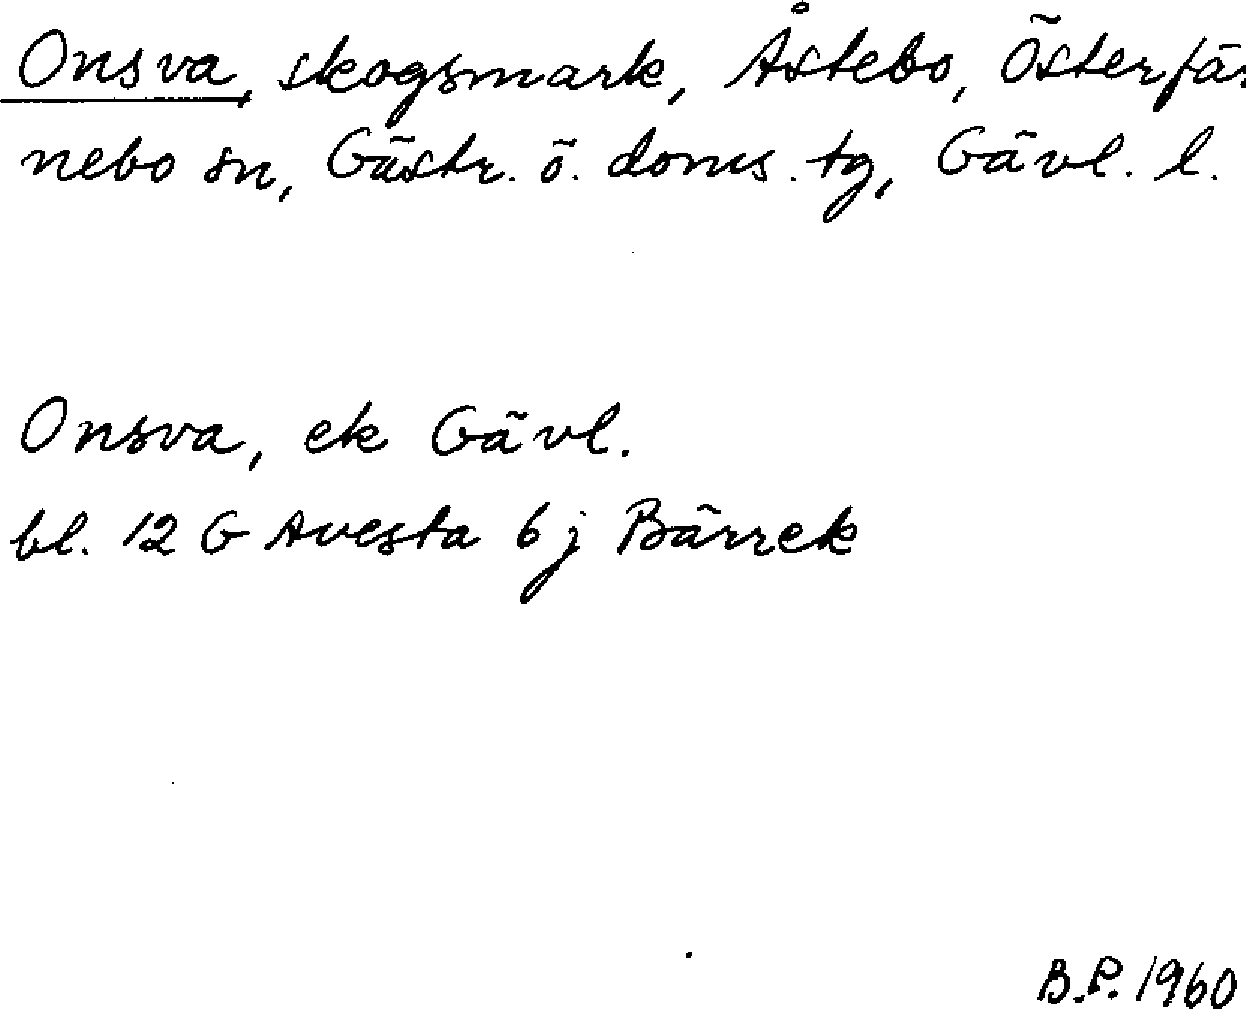 Onsva, skogsmark, Åstebo, Österfär
nebo sn, Gästr. ö. doms. tg, Gävl. l.
Onsva, ek Gävl.
bl. 12 G Avesta 6 j Bärrek
B.P. 1960